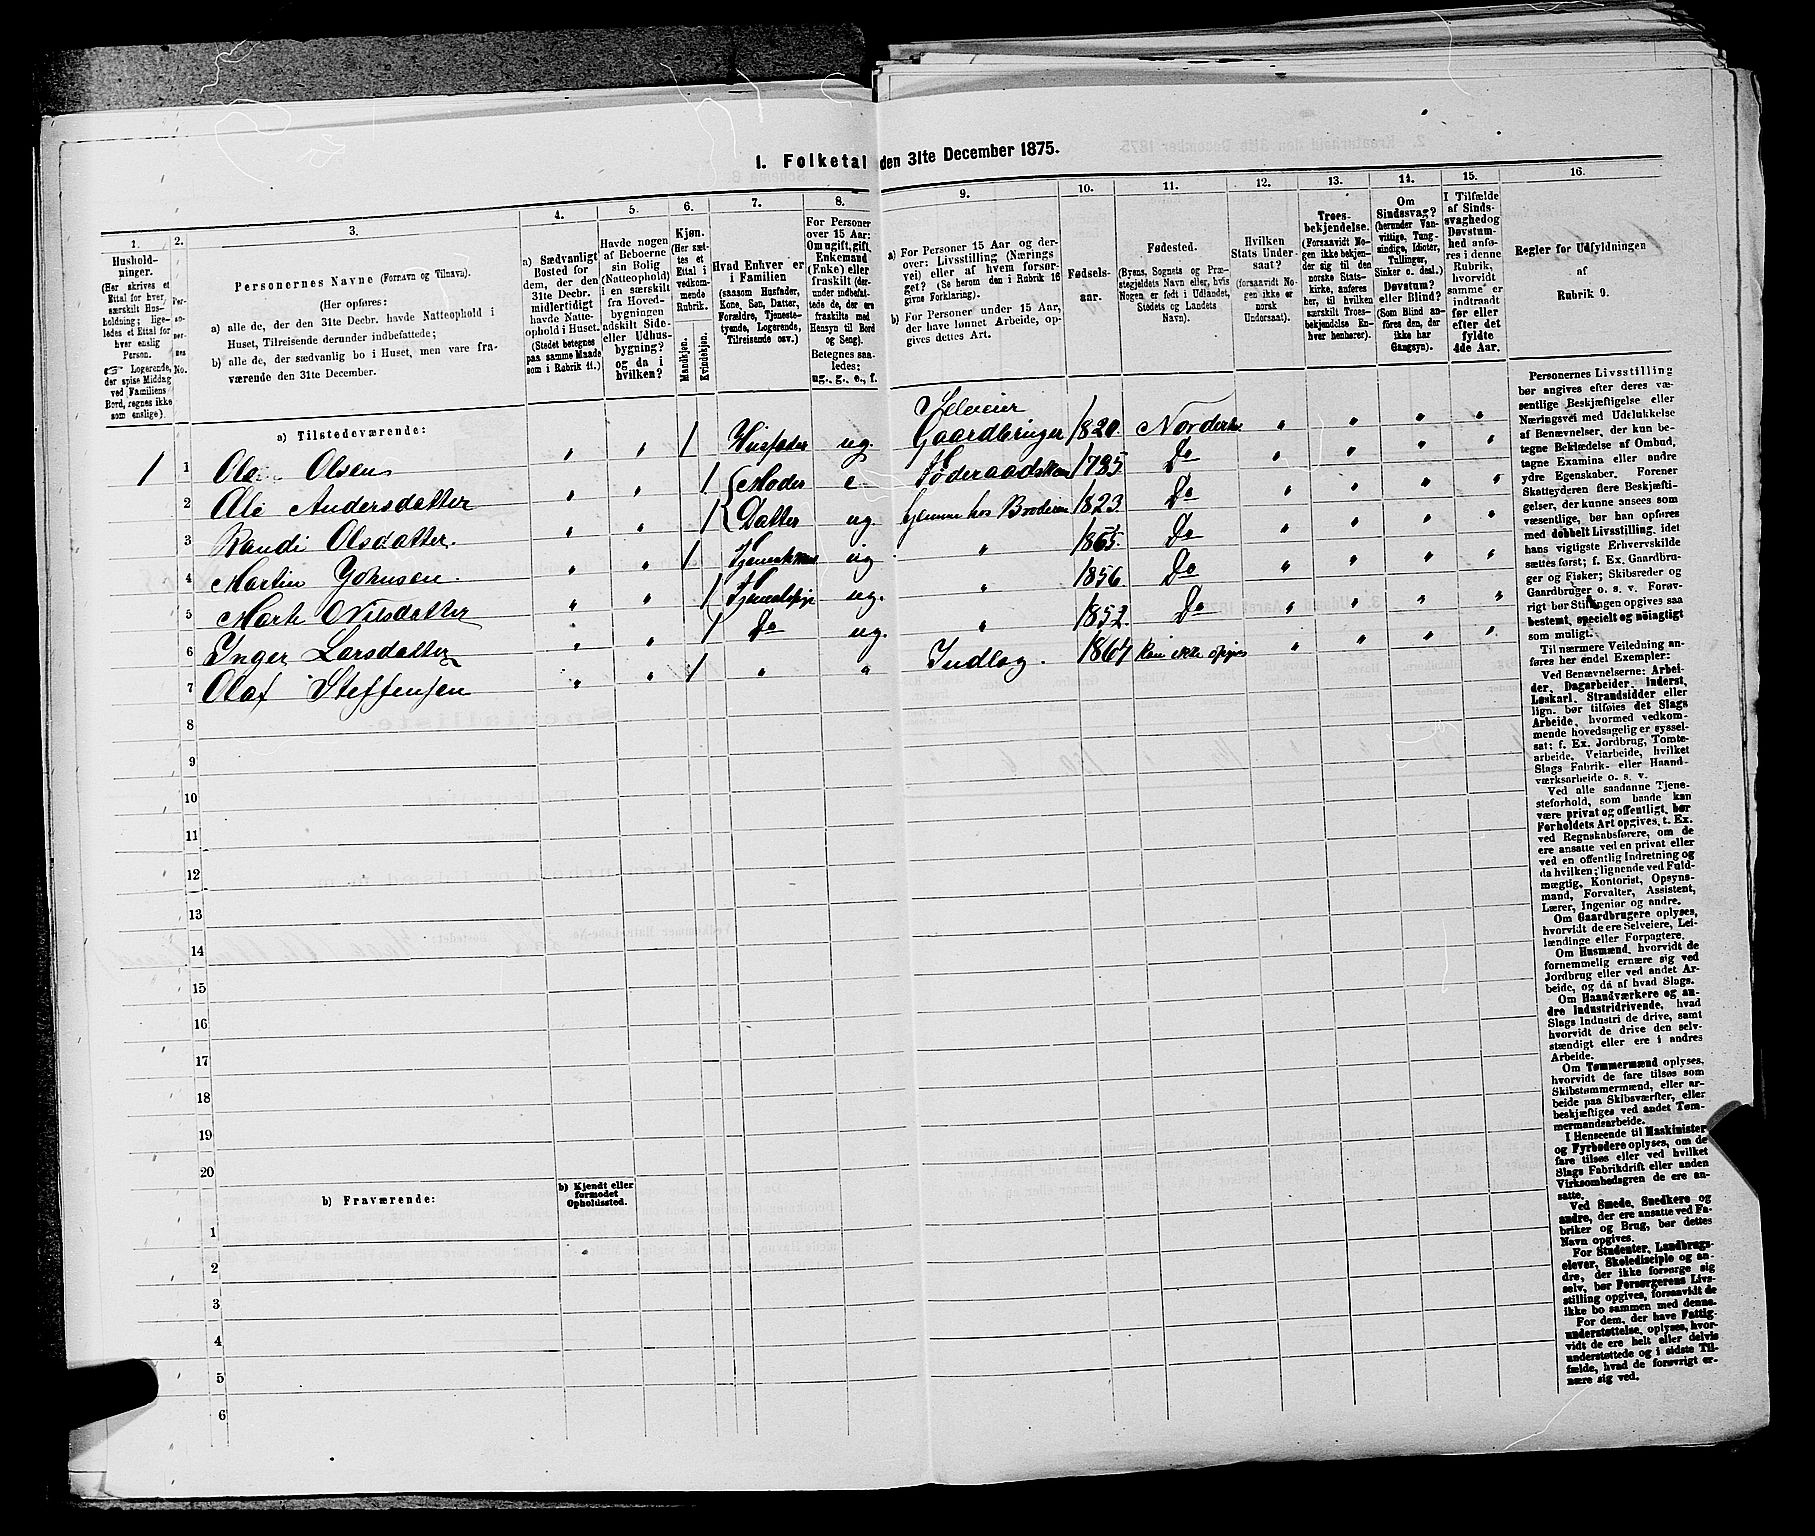 1. Folketal den 31te December 1875.
1. 2. 3. 4. 5. 6. 7. 8. 9. 10. 11. 12. 13. 14. 15. 16.
Husholdninger.
(Her skrives et
Ettal for hver
særskilt Husholdning;
ligeledes et Ettal for
hver enslig
Person.
☞ Logerende,
der spise Middag
ved Familiens
Bord, regnes ikke
som enslige).
Personernes No.
Personernes Navne (Fornavn og Tilnavn).
(Her opføres:
a) alle de, der den 31te Decbr. havde Natteophold i
Huset, Tilreisende derunder indbefattede;
b) alle de, der sædvanlig bo i Huset, men vare fraværende
den 31te December.
a) Sædvanligt
Bosted for
dem, der den
31te Decbr.
midlertidigt
havde Natteophold
i Huset.
(Stedet betegnes
paa samme Maade
som i Rubrik 11.)
Havde nogen
af Beboerne
sin Bolig
(Natteophold)
i en særskilt
fra Hovedbygningen
adskilt Side-
eller Udhusbygning?
og da i
hvilken?
Kjøn.
(Her sættes
et
Ettal i
vedkommende
Rubrik.
Mandkjøn.
Kvindekjøn.
Hvad Enhver er
i Familien
(saasom Husfader,
Kone, Søn, Datter,
Forældre, Tjenestetyende,
Logerende,
Tilreisende osv.)
For Personer
over 15 Aar:
Om ugift, gift,
Enkemand
(Enke) eller
fraskilt (derunder
indbefattede
de, der ere
fraskilte med
Hensyn til Bord
og Seng).
Betegnes saaledes:
ug., g., e., f.
a) For Personer 15 Aar og derover:
Livsstilling (Næringsvei)
eller af hvem forsørget?
(Se herom den i Rubrik 16
givne Forklaring).
b) For Personer under 15 Aar,
der have lønnet Arbeide, opgives
dettes Art.
Fødselsaar.
Fødested.
(Byens, Sognets og Præstegjeldets
Navn eller, hvis
Nogen er født i Udlandet,
Stedets og Landets
Navn).
Hvilken
Stats Undersaat?
(forsaavidt Nogen
ikke er
norsk
Undersaat).
Troesbekjendelse.
(Forsaavidt Nogen
ikke bekjender
sig til den
norske Statskirke,
anføres
her, til hvilken
særskilt Troesbekjendelse
Enhver
henhører).
Om
Sindssvag?
(herunder Vanvittige,
Tungsindige,
Idioter,
Tullinger,
Sinker o. desl.)
Døvstum?
eller Blind?
(Som Blind anføres
den, der
ikke har
Gangsyn).
I Tilfælde
af Sindssvaghed og
Døvstumhed
anføres
i denne
Rubrik,
hvorvidt
samme er
indtraadt
før eller
efter det
fyldte
4de Aar.
Regler for Udfyldningen
af
Rubrik 9.
a) Tilstedeværende:
1 1 Ole Olsen " " 1 Husfader ug. Selveier Gaardbruger 1820. Norderhov " " " "
2 Ale Andersdatter " " 1 Moder e 1785. Do " " " "
3 Randi Olsdatter. " " 1 Datter ug. hjemme hos Broderen 1823. Do " " " "
4 Martin Johnsen. " " 1 ug " 1855. Do " " " "
5 Marte Nilsdatter " " 1 Tjenestepige ug. " 1856. Do " " " "
6 Inger Larsdatter " " 1 Do ug. " 1852. Do " " " "
7 Olaf Steffensen " " 1 " " Indlag. 1867 kan ikke opgives " " " "
8
9
10
11
12
13
14
15
16
17
18
19
20
b) Fraværende:
b) Kjendt eller
formodet
Opholdssted.
1
2
3
4
5
6
Personernes Livsstilling
bør angives efter deres væsentlige
Beskjæftigelse eller
Næringsvei med Udelukkelse
af Benævnelser, der kun betegne
Beklædelse af Ombud,
tagne Examina eller andre
ydre Egenskaber. Forener
Skatteyderen flere Beskjæftigelser,
der kunne ansees som
væsentlige, bør han opføres
med dobbelt Livsstilling, idet
hans vigtigste Erhvervskilde
sættes først; f. Ex. Gaardbruger
og Fisker; Skibsreder og
Gaardbruger o. s. v. Forøvrigt
bør Stillingen opgives saa
bestemt, specielt og nøiagtigt
som muligt.
Til nærmere Veiledning anføres
her endel Exempler:
Ved Benævnelserne: Arbeider,
Dagarbeider, Inderst,
Løskarl, Strandsidder eller
lign. bør tilføies det Slags
Arbeide, hvormed vedkommende
hovedsagelig er sysselsat;
f. Ex. Jordbrug, Tomtearbeide,
Veiarbeide, hvilket
Slags Fabrik- eller Haandværksarbeide
o. s. v.
Ved alle saadanne Tjenesteforhold,
som baade kan
være privat og offentligt, bør
Forholdets Art opgives, t. Ex.
ved Regnskabsførere, om de
ere ansatte ved en privat eller
ved en offentlig Indretning og
da hvilken; lignende ved Fuldmægtig,
Kontorist, Opsynsmand,
Forvalter, Assistent,
Lærer, Ingeniør og andre.
Om Gaardbrugere oplyses,
hvorvidt de ere Selveiere, Leilændinge
eller Forpagtere.
Om Husmænd, hvorvidt de
fornemmelig ernære sig ved
Jordbrug eller ved andet Arbeide,
og da af hvad Slags.
Om Haandværkere og andre
Industridrivende, hvad
Slags Industri de drive, samt
hvorvidt de drive den selvstændigt
eller ere i andres
Arbeide.
Om Tømmermænd oplyses,
hvorvidt de fare tilsøs som
Skibstømmermænd, eller arbeide
paa Skibsværfter, eller
beskjæftiges ved andet Tømmermandsarbeide.
I Henseende til Maskinister
og Fyrbødere oplyses, om de
fare tilsøs eller ved hvilket
Slags Fabrikdrift eller anden
Virksombedsgren de ere ansatte.
Ved Smede, Snedkere og
andre, der ere ansatte ved Fabriker
og Brug, bør dettes
Navn opgives.
For Studenter, Landbrugselever,
Skoledisciple og andre,
der ikke forsørge sig
selv, bør Forsørgerens Livsstilling
opgives, forsaavidt de
ikke bo sammen med denne.
For dem, der have Fattigunderstøttelse,
oplyses, hvorvidt
de ere helt eller delvis
understøttede og i sidste Tilfælde,
hvad de forøvrigt ernære
sig ved.